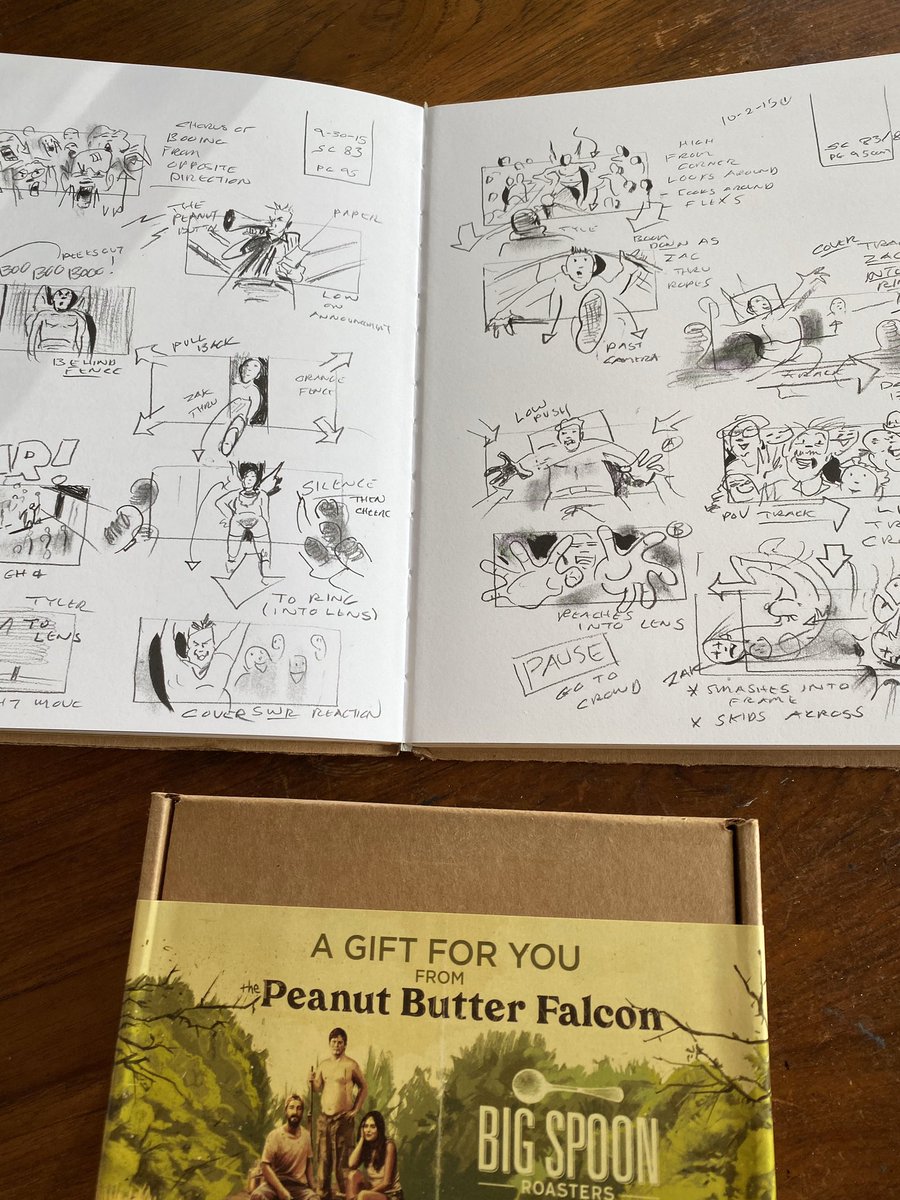 CHORUS OF
BOOING
FROM
OPPOSITE
DIRECTION
9-30-15
SC 83
PG 95
THE
PEANUT
BUTTA
PAPER
LOW
ON
ANNOUNCEMENT
PEEKS OUT
BOO BOO BOOO!
BEHIND
FENCE
PULL
BACK
ZAK
THRU
ORANGE
FENCE
SILENCE
THEN
CHEERS
TO RING
(INTO LENS)
TYLER
TO
LENS
MOVE
COVER SWR REACTION
10-2-15
SC 83
PG 95
HIGH
FROM
CORNER
LOOKS AROUND
LOOKS AROUND
FLEXS
TYLE
BOOM
DOWN AS
ZAC
THRU
ROPES
PAST
CAMERA
COVER
TRACK
ZAC
INTO
TRACK
LOW
PUSH
A
POV TRACK
B
REACHES
INTO LENS
PAUSE
GO TO
CROWD
ZAK
* SMASHES INTO
FRAME
* SKIDS ACROSS
A GIFT FOR YOU
FROM
the Peanut Butter Falcon
BIG SPOON
ROASTERS